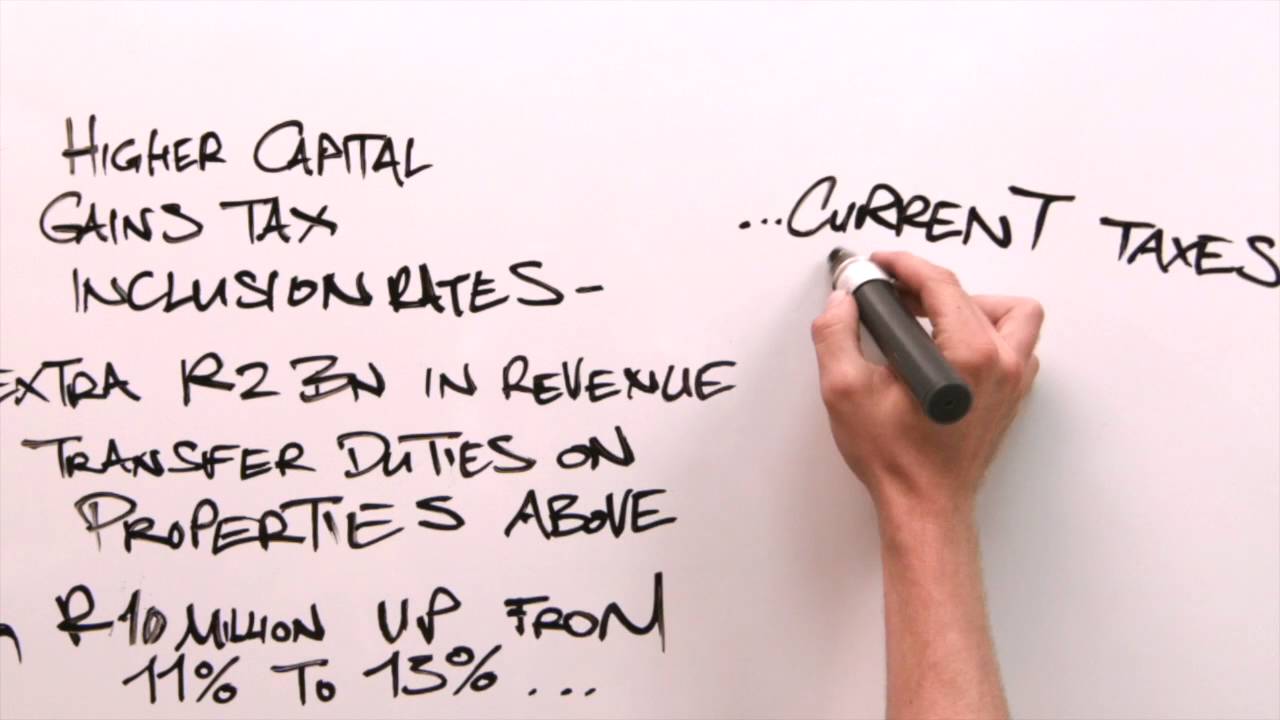 HIGHER CAPITAL
GAINS TAX
INCLUSION RATES-
EXTRA R2 BN IN REVENUE
TRANSFER DUTIES ON
PROPERTIES ABOVE
R10 MILLION UP FROM
11% TO 13% ...
...CURRENT TAXES